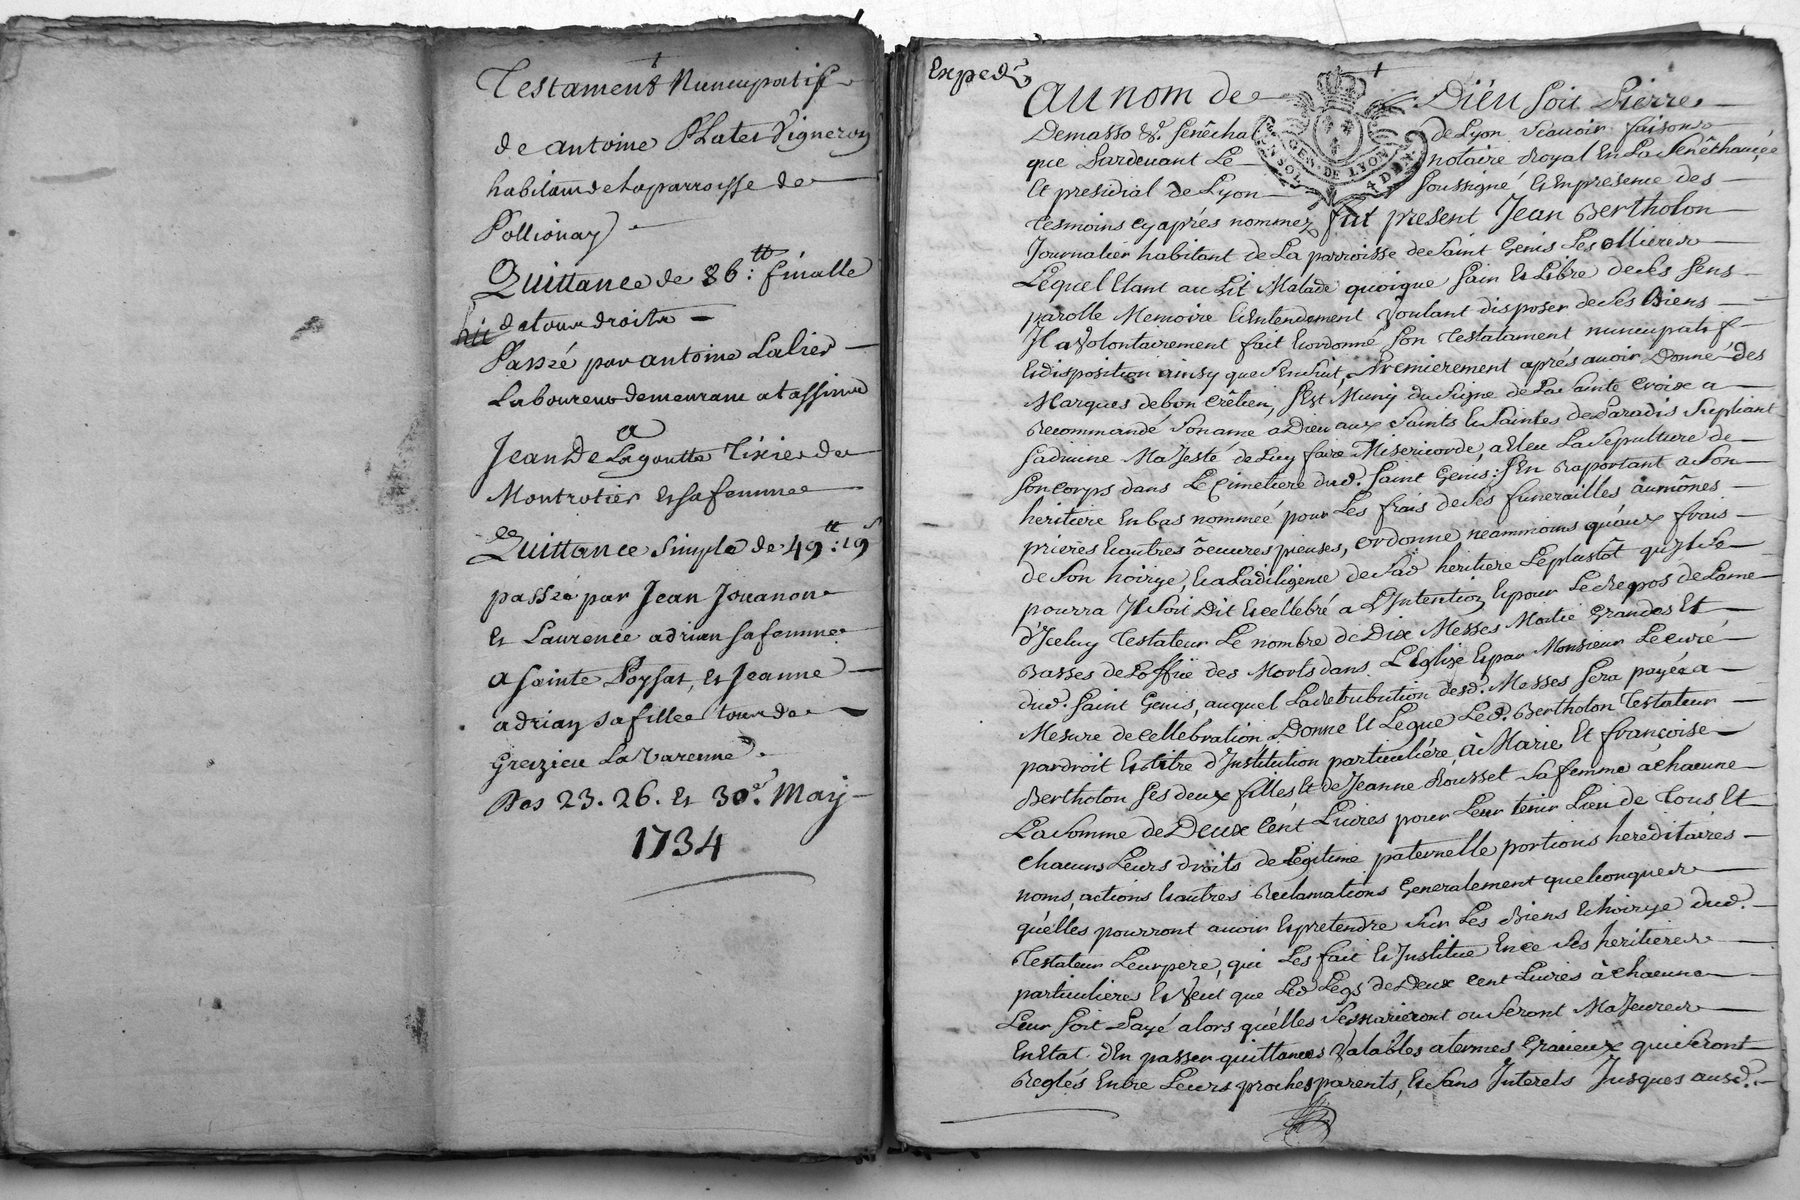 Testament Nuncupatif
de antoine Plater Vigneron
habitant de la parroisse de
Pollionay
Quittance de 86:tt finalle
de tous droits
Passé par antoine Lalier
Laboureur demeurant a tassin a
Jean De La goutte Tixier de
Montrotier et sa femme
Quittance Simple de 49:tt 19s
passée par Jean Jouanon
et Laurence adrian sa femme
a sainte Poysat, et Jeanne
adrian sa fille tour de
Greizieu La Varenne
Des 23. 26. et 30e. May
1734
Exped.
Au nom de Diéu soit Pierre
Demasso &r. senêchal de Lyon scavoir faisons
que Pardevant Le notaire Royal En La senêchaucée
Et presidial de Lyon soussigné et En presence des
Tesmoins cy aprés nommez fut present Jean Bertholon
Journalier habitant de La parroisse de saint Genis Les ollieres
Lequel Etant au Lit Malade quoique sain et Libre de ses sens
parolle Memoire et Entendement Voulant disposer de ses Biens
Il a Volontairement fait et ordonné son Testatament nuncupatif
et disposition ainsy que s'En suit, Premierement aprés avoir Donné des
Marques de bon crêtien, s'Est Muny du signe de La sainte croix a
Recommandé son ame a Dieu aux saints et saintes de Paradis supliant
sa divine Majesté de Luy faire Misericorde, a Eleu La sepulture de
son corps dans Le Cimetiere dud. saint Genis: s'En Raportant a son
heritiere En bas nommeé pour Les frais de ses funerailles aumônes
prieres et autres oeuvres pieuses, ordonne neammoins qu'aux frais
de son hoirye, et a La diligence de sad heritiere Le plustôt qu'il se
pourra Il soit Dit et cellebré a L'Intention et pour Le Repos de L'ame
d'Iceluy Testateur Le nombre de Dix Messes Moitié Grandes Et
Basses de L'office des Morts dans L'Eglise et par Monsieur Le curé
dud. saint Genis, auquel La Retribution desd. Messes sera payée a
Mesure de cellebration Donne Et Legue Led. Bertholon Testateur
par droit et titre d'Institution particuliére, à Marie Et françoise
Bertholon ses deux filles Et de Jeanne Rousset sa femme à chacune
La somme de Deux Cent Livres pour Leur tenir Lieu de Tous Et
chacuns Leurs droits de Légitime paternelle portions hereditaires
noms, actions et autres Reclamations Generalement quelconques
qu'elles pourront avoir et pretendre sur Les Biens et hoirye dud.
Testateur Leur pere, qui Les fait et Institue En ce ses heritieres
particulieres et Veut que Led Legs de Deux cent Livres à chacune
Leur soit Payé alors qu'elles se Marieront ou seront Majeures
En Etat d'En passer quittances Valables a termes Gracieux qui seront
Reglés Entre Leurs proches parents, et sans Interets Jusques ausd.